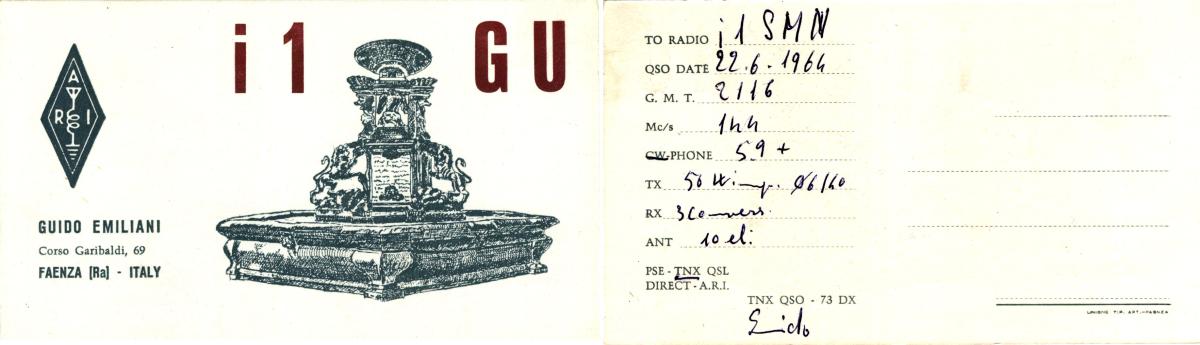 i1 GU
A
R I
GUIDO EMILIANI
Corso Garibaldi, 69
FAENZA [Ra] - ITALY
TO RADIO i1SMN
QSO DATE 22.6.1964
G. M. T. 2116
Mc/s 144
CW-PHONE 59+
TX 50 W 06/40
RX 3 Convers.
ANT 10 el.
PSE - TNX QSL
DIRECT - A.R.I.
TNX QSO - 73 DX
Guido
UNIONE TIP. ART.-FAENZA